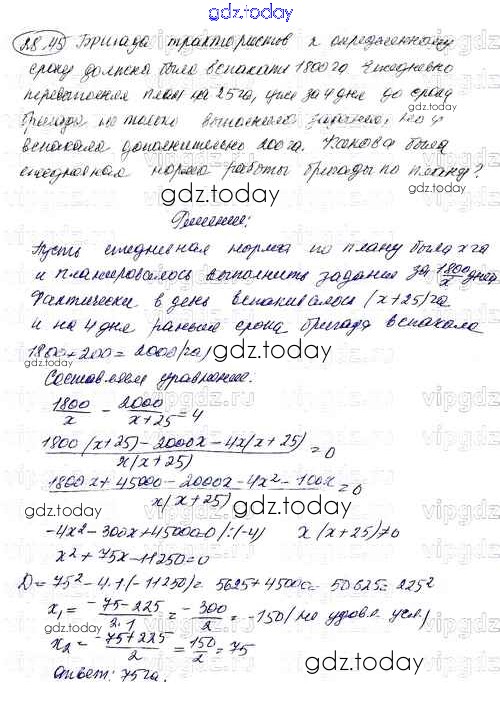 gdz.today
28.45 Бригада трактористов к определенному
сроку должна была вспахать 1800 га. Ежедневно
перевыполняя план на 25 га, уже за 4 дня до срока
бригада не только выполнила задание, но и
вспахала дополнительно 200 га. Какова была
ежедневная норма работы бригады по плану?
gdz.today
gdz.today
Решение:
Пусть ежедневная норма по плану была x га
и планировалось выполнить задания за 1800/x дней
Фактически в день вспахивалось (x+25) га
и на 4 дня раньше срока бригада вспахала
1800+200=2000(га)
gdz.today
Составляем уравнение:
1800/x - 2000/(x+25) = 4
(1800(x+25)-2000x-4x(x+25))/(x(x+25)) = 0
(1800x+45000-2000x-4x²-100x)/(x(x+25)) = 0
gdz.today
-4x²-300x+45000=0 /:(-4) x(x+25)≠0
x²+75x-11250=0
D=75²-4·1·(-11250)=5625+45000=50625=225²
x₁=(-75-225)/(2·1)=-300/2=-150(не удовл. усл.)
x₂=(-75+225)/2=150/2=75
gdz.today
Ответ: 75 га.
gdz.today